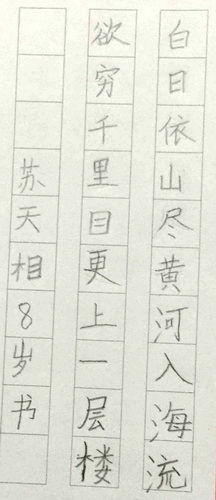 白日依山尽黄河入海流
欲穷千里目更上一层楼
苏天相8岁书